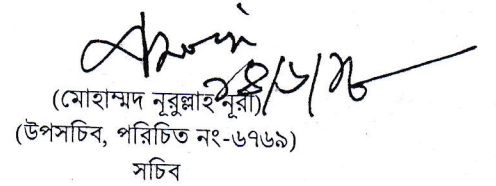 (মোহাম্মদ নূরুল্লাহ নূরী)
(উপসচিব, পরিচিত নং-৬৭৬৯)
সচিব